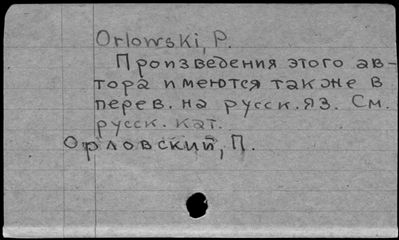 Orlowski, P.
Произведения этого ав-
тора имеются также в
перев. на русск. яз. См.
русск. кат.
Орловский, П.